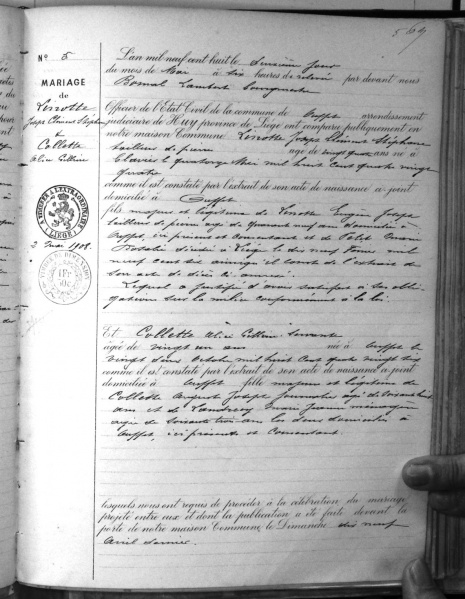 5
N° 5
MARIAGE
de
Linotte
Joseph Clément Stéphane
&
Collette
Alice
2 Mai 1908.
L'an mil neuf cent huit le deuxième jour
du mois de Mai à six heures de relevée par devant nous
Bonnal Lambert
Officier de l'Etat Civil de la commune de Ouffet arrondissement
judiciaire de Huy province de Liége ont comparu publiquement en
notre maison Commune Linotte Joseph Clément Stéphane
tailleur de pierre âgé de ans né à
Clavier le quatorze Mai mil huit cent quatre vingt
quatre
comme il est constaté par l'extrait de son acte de naissance a-joint
domicilié à Ouffet
fils majeur et légitime de Linotte Eugène Joseph
tailleur de pierre âgé de quarante neuf ans domicilié à
Ouffet, ici présent et consentant et de Petit Marie
Rosalie décédée à Liége le dix neuf mil
neuf cent six ainsi qu'il conste de l'extrait de
son acte de décès ci annexé.
Lequel a justifié d'avoir satisfait à ses obli-
gations sur la milice conformément à la loi.
Et Collette Alice servante
âgée de vingt un ans née à Ouffet le
vingt deux Octobre mil huit cent quatre vingt six
comme il est constaté par l'extrait de son acte de naissance a-joint
domiciliée à Ouffet fille majeure et légitime de
Collette August Joseph journalier âgé de soixante huit
ans et de Marie Jeanne ménagère
âgée de soixante trois ans les deux domiciliés à
Ouffet, ici présents et Consentant.
lesquels nous ont requis de procéder à la célébration du mariage
projeté entre eux et dont la publication a été faite devant la
porte de notre maison Commune, le Dimanche dix neuf
Avril dernier.